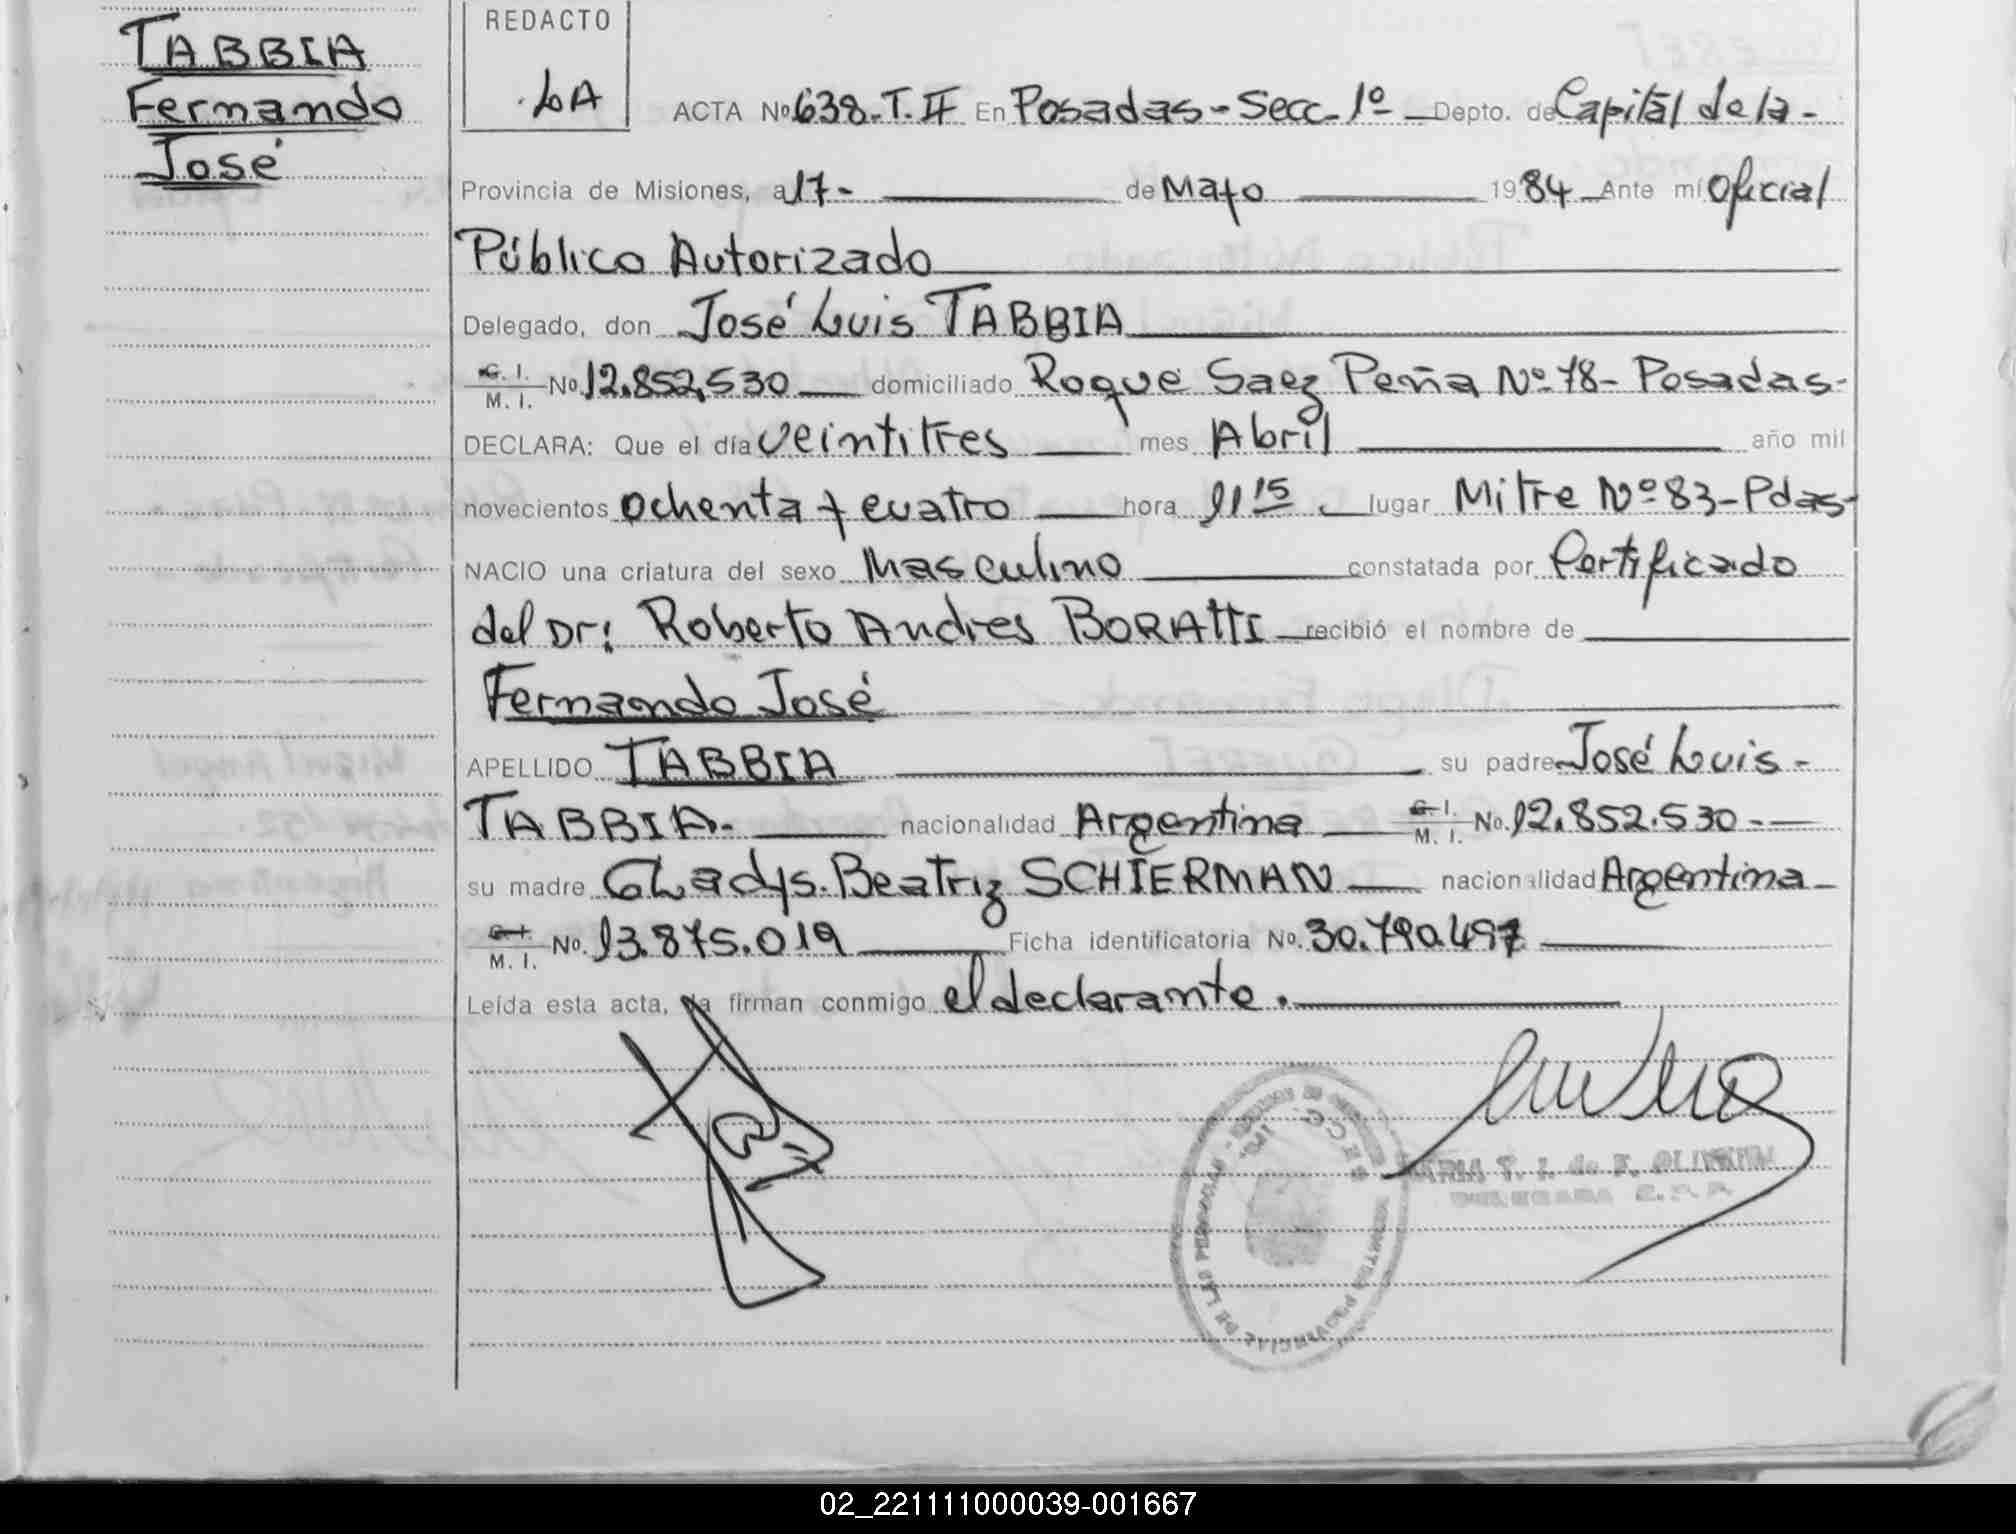 TABBIA
Fernando
José
REDACTO
LA
ACTA No 638-T.II En Posadas-Secc-1º Depto. de Capital de la-
Provincia de Misiones, a 17- de Mayo 1984 Ante mí Oficial
Público Autorizado
Delegado, don José Luis TABBIA
C. I. M. I. No. 12.852.530 domiciliado Roque Saez Peña Nº 78- Posadas-
DECLARA: Que el día veintitres mes Abril año mil
novecientos ochenta y cuatro hora 11 15 lugar Mitre Nº 83-Pdas-
NACIO una criatura del sexo Masculino constatada por Certificado
del Dr: Roberto Andres BORATTI recibió el nombre de
Fernando José
APELLIDO TABBIA su padre José Luis-
TABBIA.- nacionalidad Argentina C. I. M. I. No. 12.852.530.-
su madre GLadys.Beatriz SCHIERMAN nacionalidad Argentina-
C. I. M. I. No. 13.875.019 Ficha identificatoria No. 30.790.497
Leída esta acta, la firman conmigo el declarante.
02_221111000039-001667